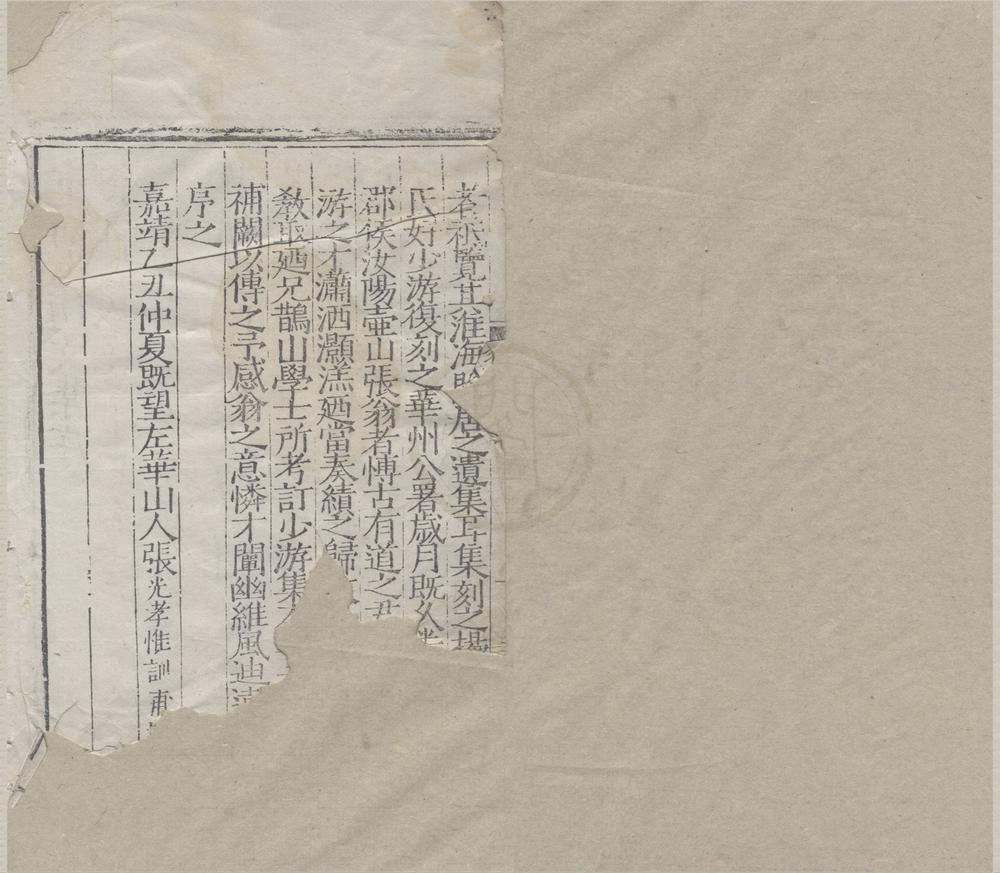 孝祇覽其淮海 居之遺集耳集刻之
氏好少游復刻之華州公署歲月既久
郡侯汝陽壷山張翁者慱古有道之
游之才瀟洒灝漾廼當奏績之歸
敎亟廼兄鵲山學士所考訂少游集
補闕以傳之予感翁之意憐才闡幽維風迪
序之
嘉靖乙丑仲夏既望左華山人張光孝惟訓甫